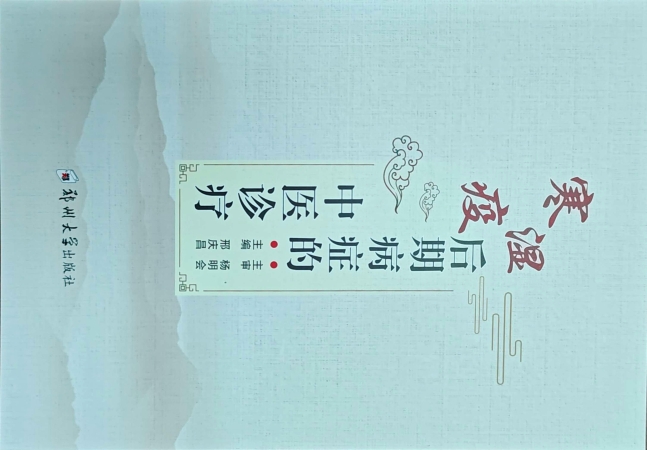 寒湿疫
后期病症的
中医诊疗
主审 杨明会
主编 邢庆昌
郑州大学出版社